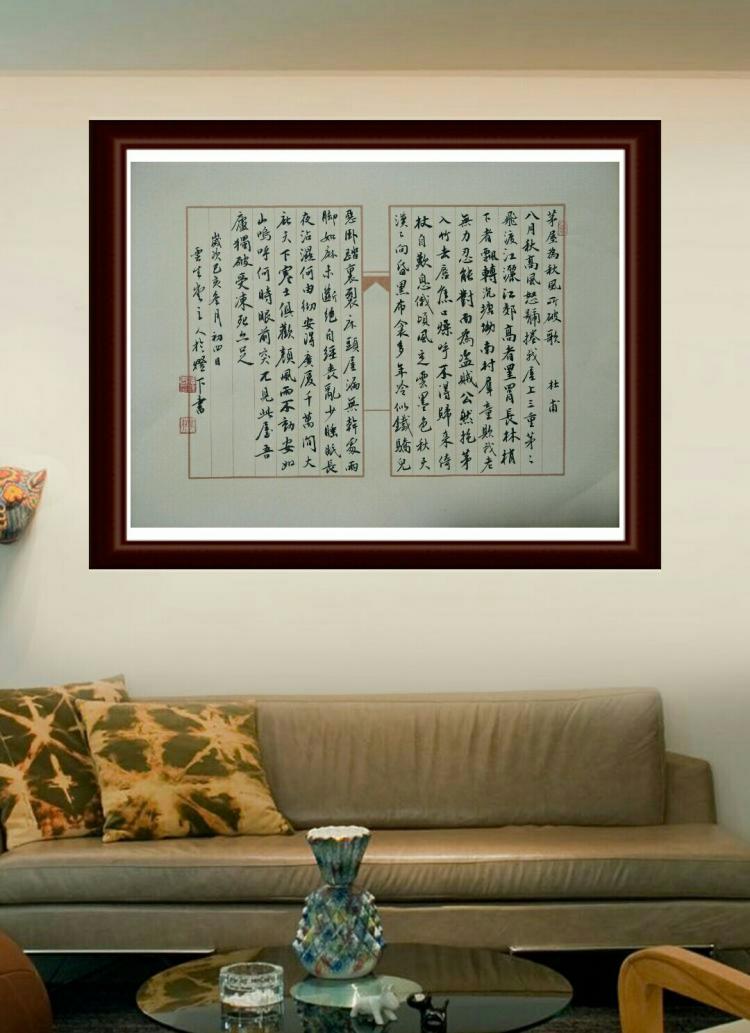 茅屋為秋風所破歌 杜甫
八月秋高風怒號捲我屋上三重茅〻
飛渡江灑江郊高者罣罥長林梢
下者飄轉沉塘坳南村羣童欺我老
無力忍能對面為盜賊公然抱茅
入竹去唇焦口燥呼不得歸來倚
杖自歎息俄頃風定雲墨色秋天
漠〻向昏黑布衾多年冷似鐵驕兒
惡卧踏裏裂床頭屋漏無幹處雨
脚如麻未斷絕自經喪亂少睡眠長
夜沾濕何由徹安得廣厦千萬間大
庇天下寒士俱歡顏風雨不動安如
山嗚呼何時眼前突兀見此屋吾
廬獨破受凍死亦足
歲次己亥冬月初四日
主人於燈下書